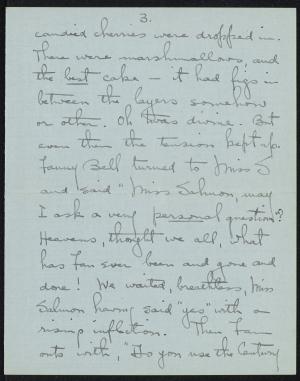 3.
candied cherries were dropped in.
There were marshmallows, and
the best cake – it had figs in
between the layers somehow
or other. Oh 'twas divine. But
even then the tension kept up.
Fanny Bell turned to Miss S
and said "Miss Salmon, may
I ask a very personal question"?
Heavens, thought we all, what
has Fan ever been and gone and
done! We waited, breathless, Miss
Salmon having said "yes" with a
rising inflection. Then Fan
outs with, "Do you use the Century